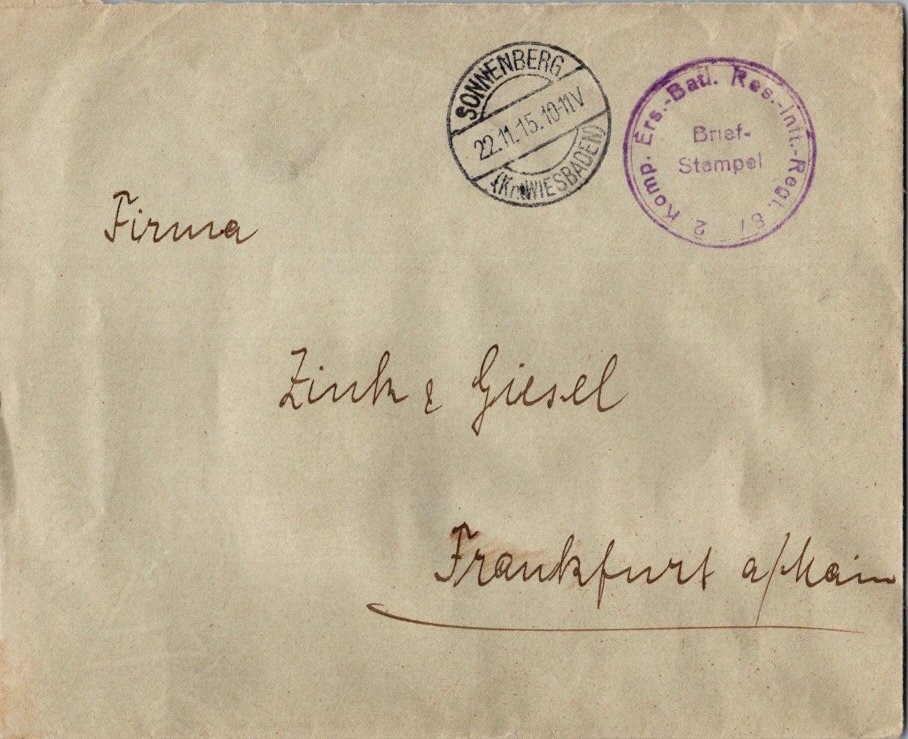 SONNENBERG
22.11.15.10-11V
(Kr. WIESBADEN)
2 Komp. Ers.-Batl. Res.-Inft.-Regt. 87
Brief-
Stempel
Firma
Zink & Giesel
Frankfurt a/Main